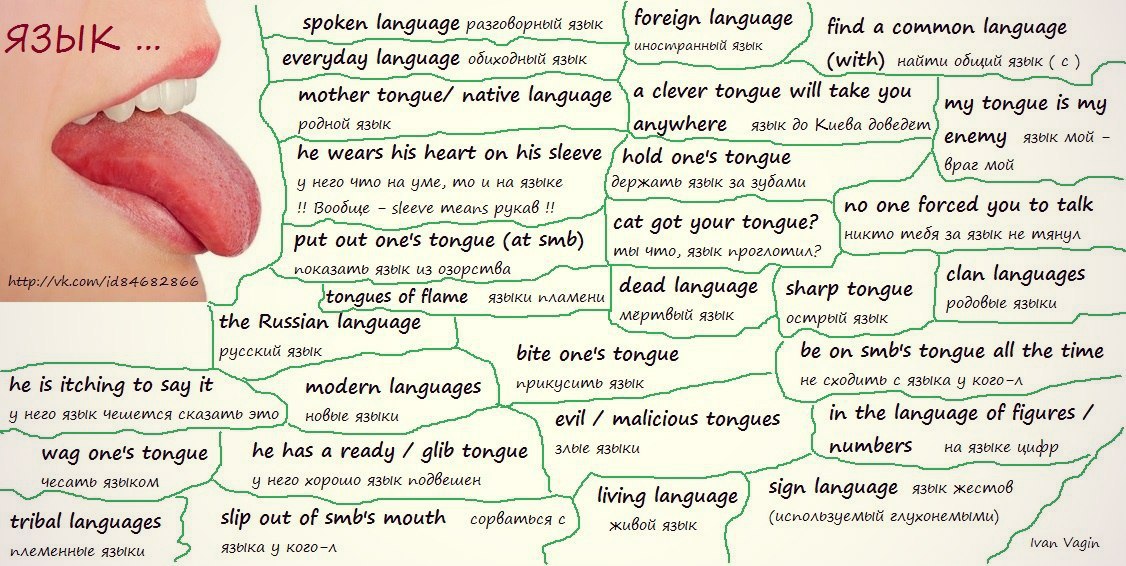 ЯЗЫК ...
http://vk.com/id84682866
spoken language разговорный язык
everyday language обиходный язык
mother tongue/ native language
родной язык
he wears his heart on his sleeve
у него что на уме, то и на языке
!! Вообще - sleeve means рукав !!
put out one's tongue (at smb)
показать язык из озорства
tongues of flame языки пламени
foreign language
иностранный язык
find a common language
(with) найти общий язык ( с )
a clever tongue will take you
anywhere язык до Киева доведет
my tongue is my
enemy язык мой -
враг мой
hold one's tongue
держать язык за зубами
cat got your tongue?
ты что, язык проглотил?
no one forced you to talk
никто тебя за язык не тянул
dead language
мертвый язык
sharp tongue
острый язык
clan languages
родовые языки
the Russian language
русский язык
he is itching to say it
у него язык чешется сказать это
modern languages
новые языки
bite one's tongue
прикусить язык
be on smb's tongue all the time
не сходить с языка у кого-л
evil / malicious tongues
злые языки
in the language of figures /
numbers на языке цифр
wag one's tongue
чесать языком
he has a ready / glib tongue
у него хорошо язык подвешен
tribal languages
племенные языки
slip out of smb's mouth сорваться с
языка у кого-л
living language
живой язык
sign language язык жестов
(используемый глухонемыми)
Ivan Vagin